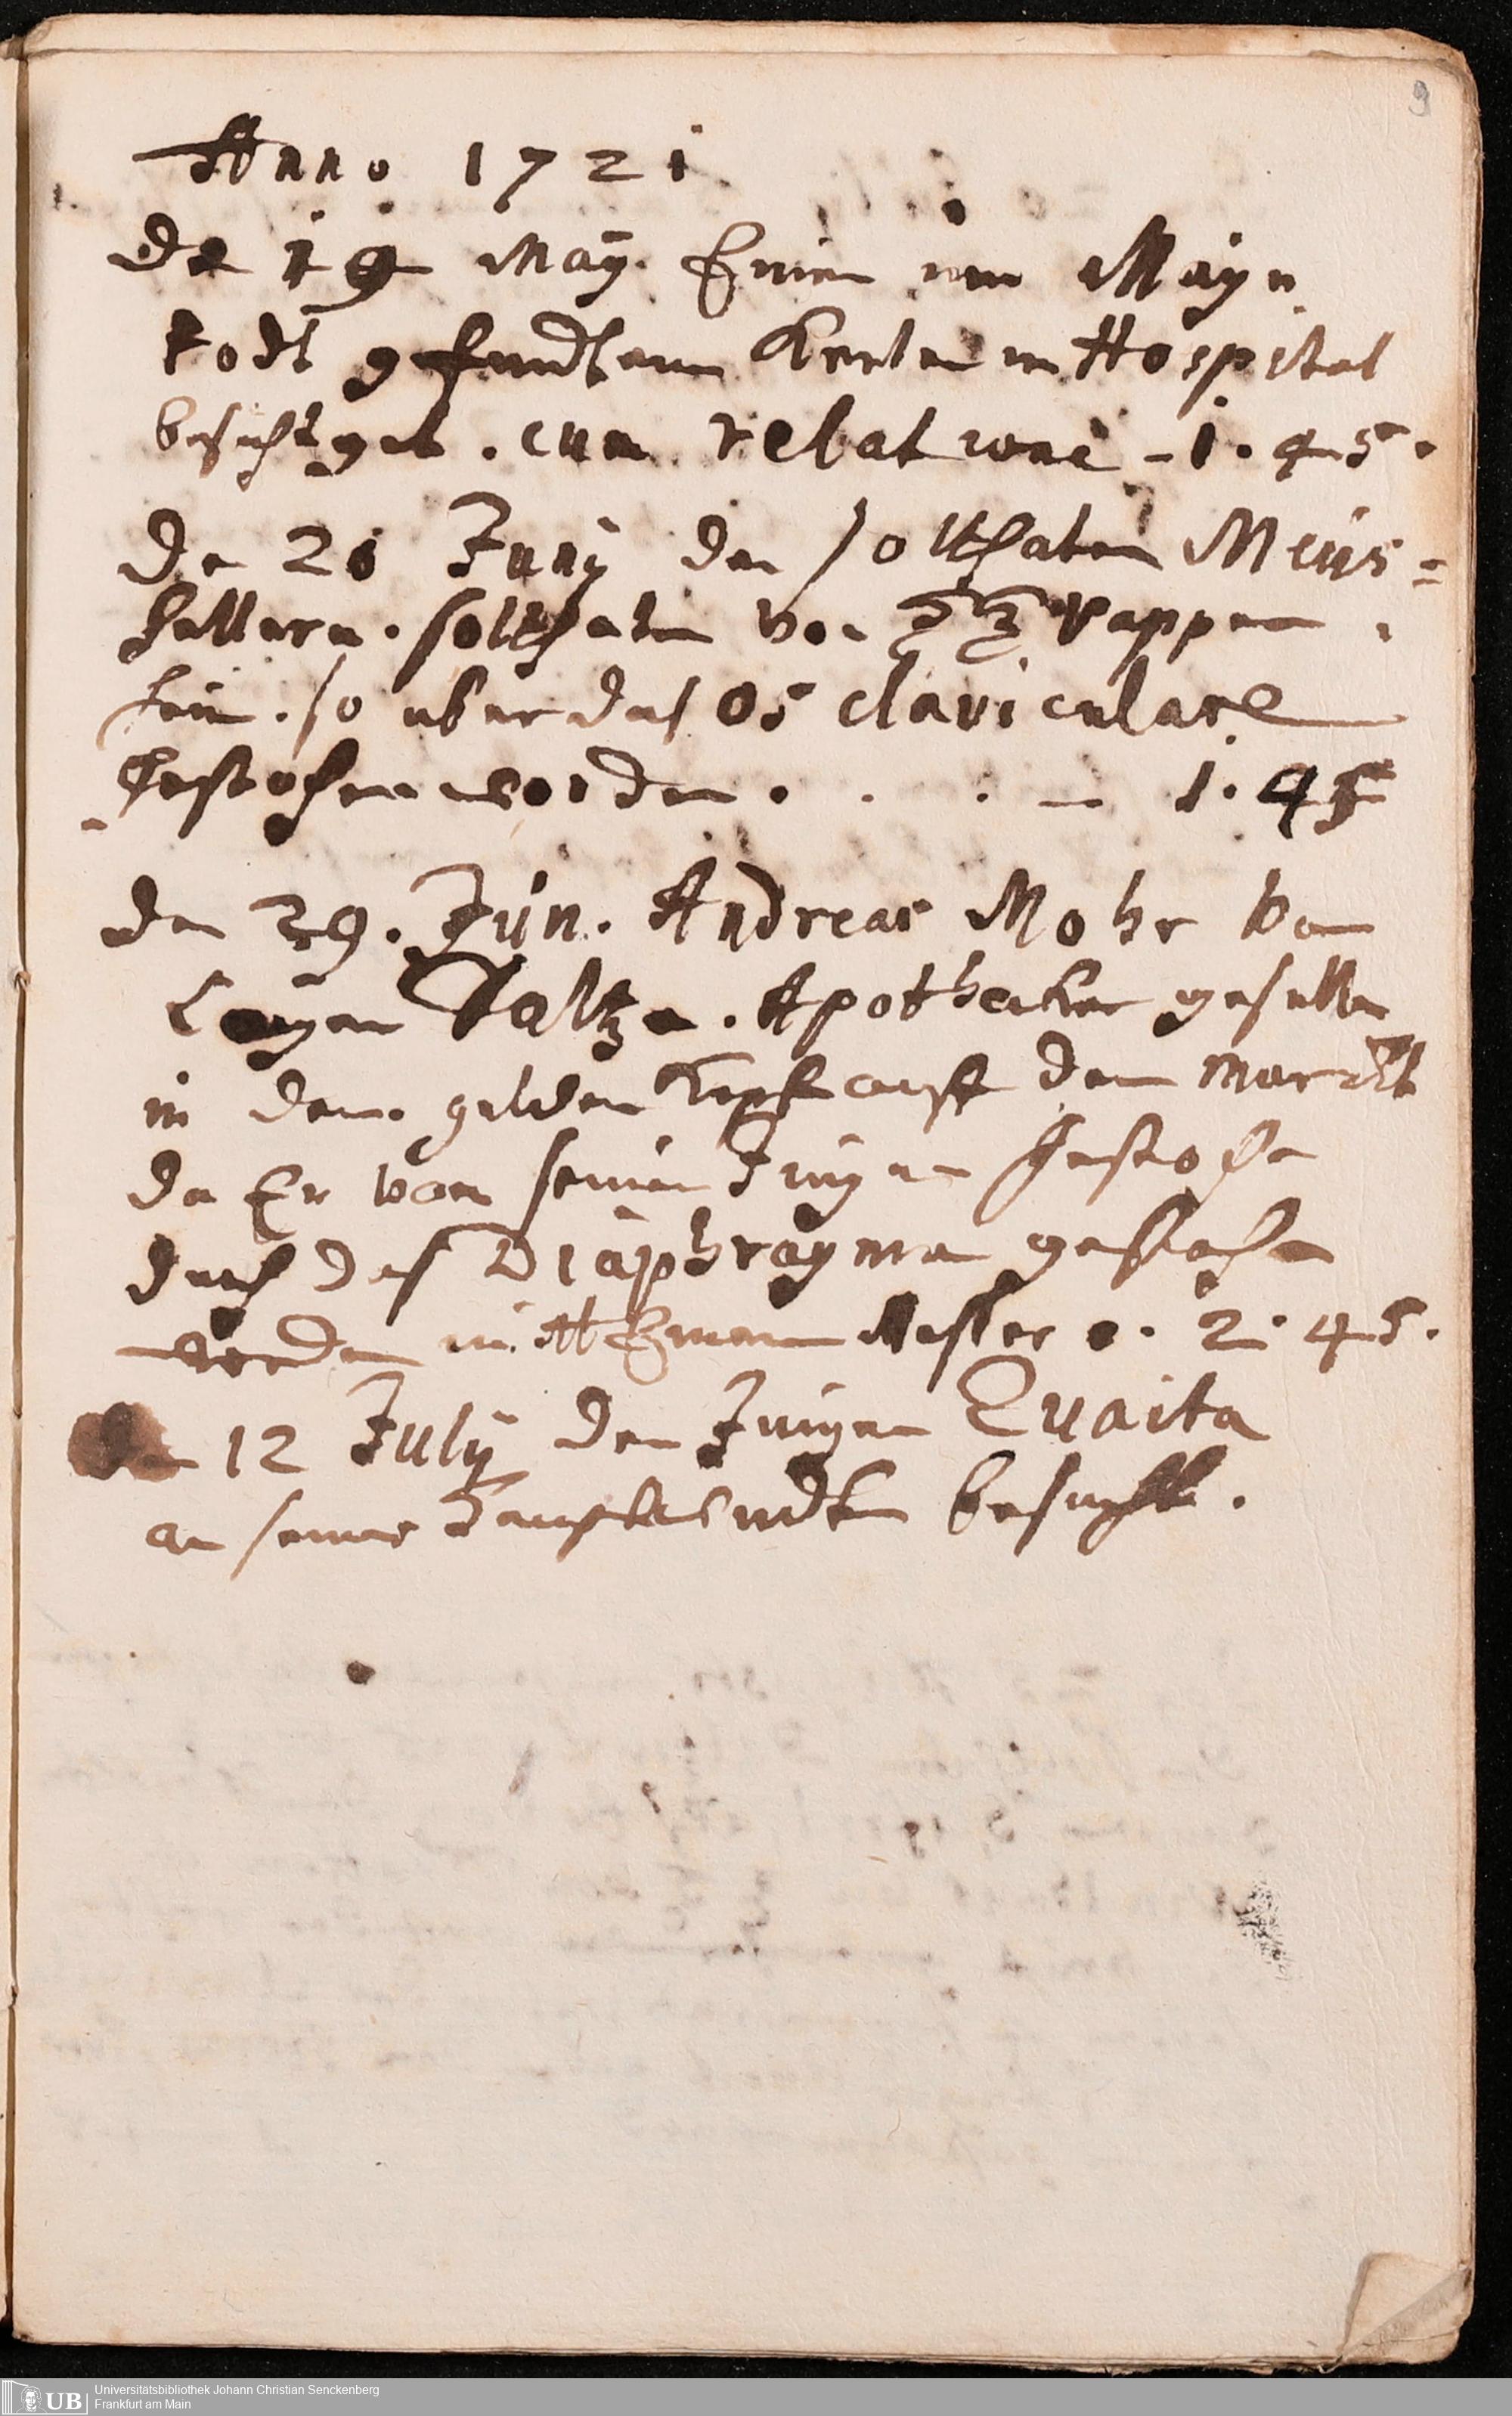 9
Anno 1721
De 19 Maÿ. Einen im Mayn
todt gefundtenen Kerlen in Hospital
besichtiget. cum relatione - 1. 45.
De 20 Junÿ den solthaten Meüs=
solthaten von Pappen
heim. so uber das Os claviculare
gestochen worden. . . — 1. 45
den 29. Jün. Andreas Mohr von
Langen Saltza. Apothecker gesellen
in dem gulden Kopf auff dem marckt
da Er von seinem Jungen gestochen
durch das Diaphragma gestochen
worden mitt Einem Messer . 2. 45.
den 12 Julÿ den Jungen Quaita
an seiner Hauptwundten besucht.
UB
Universitätsbibliothek Johann Christian Senckenberg
Frankfurt am Main